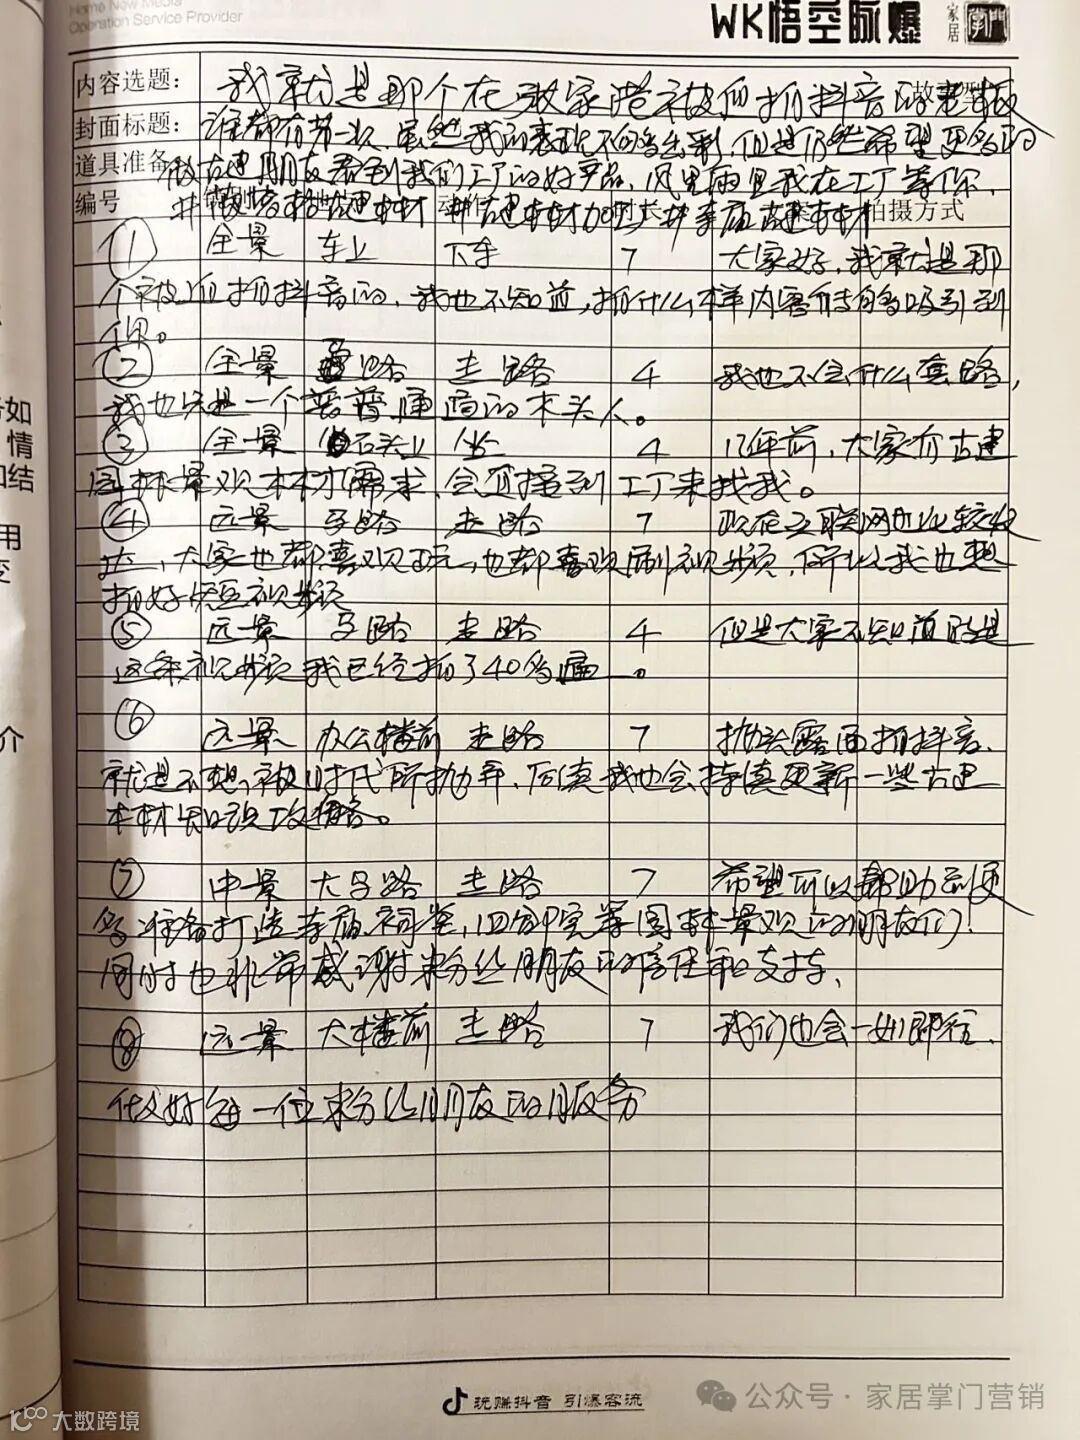 Home New Media
Operation Service Provider
WK悟空脉爆
家居
内容选题: 我就是那个在张家港被迫拍抖音的老板
封面标题: 谁都有第一次,虽然我的表现不够出彩,但是仍然希望更多的
道具准备 做古建朋友看到我们工厂的好产品,风里雨里我在工厂等你,
编号 #古建木材 #古建木材加工 #寺庙古建木材 拍摄方式
① 全景 车上 下车 7 大家好,我就是那
个被迫拍抖音的,我也不知道,拍什么样内容才能够吸引到
你。
② 全景 马路 走路 4 我也不会什么套路,
我也只是一个普普通通的木头人。
③ 全景 石头上 坐 4 12年前,大家有古建
园林景观木材需求,会直接到工厂来找我。
④ 远景 马路 走路 7 现在互联网也比较发
达,大家也都喜欢玩,也都喜欢刷视频,所以我也想
拍好短视频
⑤ 远景 马路 走路 4 但是大家不知道的是
这条视频我已经拍了40多遍。
⑥ 远景 办公楼前 走路 7 抛头露面拍抖音,
就是不想被时代所抛弃,后续我也会持续更新一些古建
木材知识攻略。
⑦ 中景 大马路 走路 7 希望可以帮助到更
多准备打造寺庙、祠堂,四合院等园林景观的朋友们!
同时也非常感谢粉丝朋友的信任和支持,
⑧ 远景 大楼前 走路 7 我们也会一如既往,
做好每一位粉丝朋友的服务
玩赚抖音 引爆客流
公众号·家居掌门营销
大数跨境
如
情
结
用
变
介